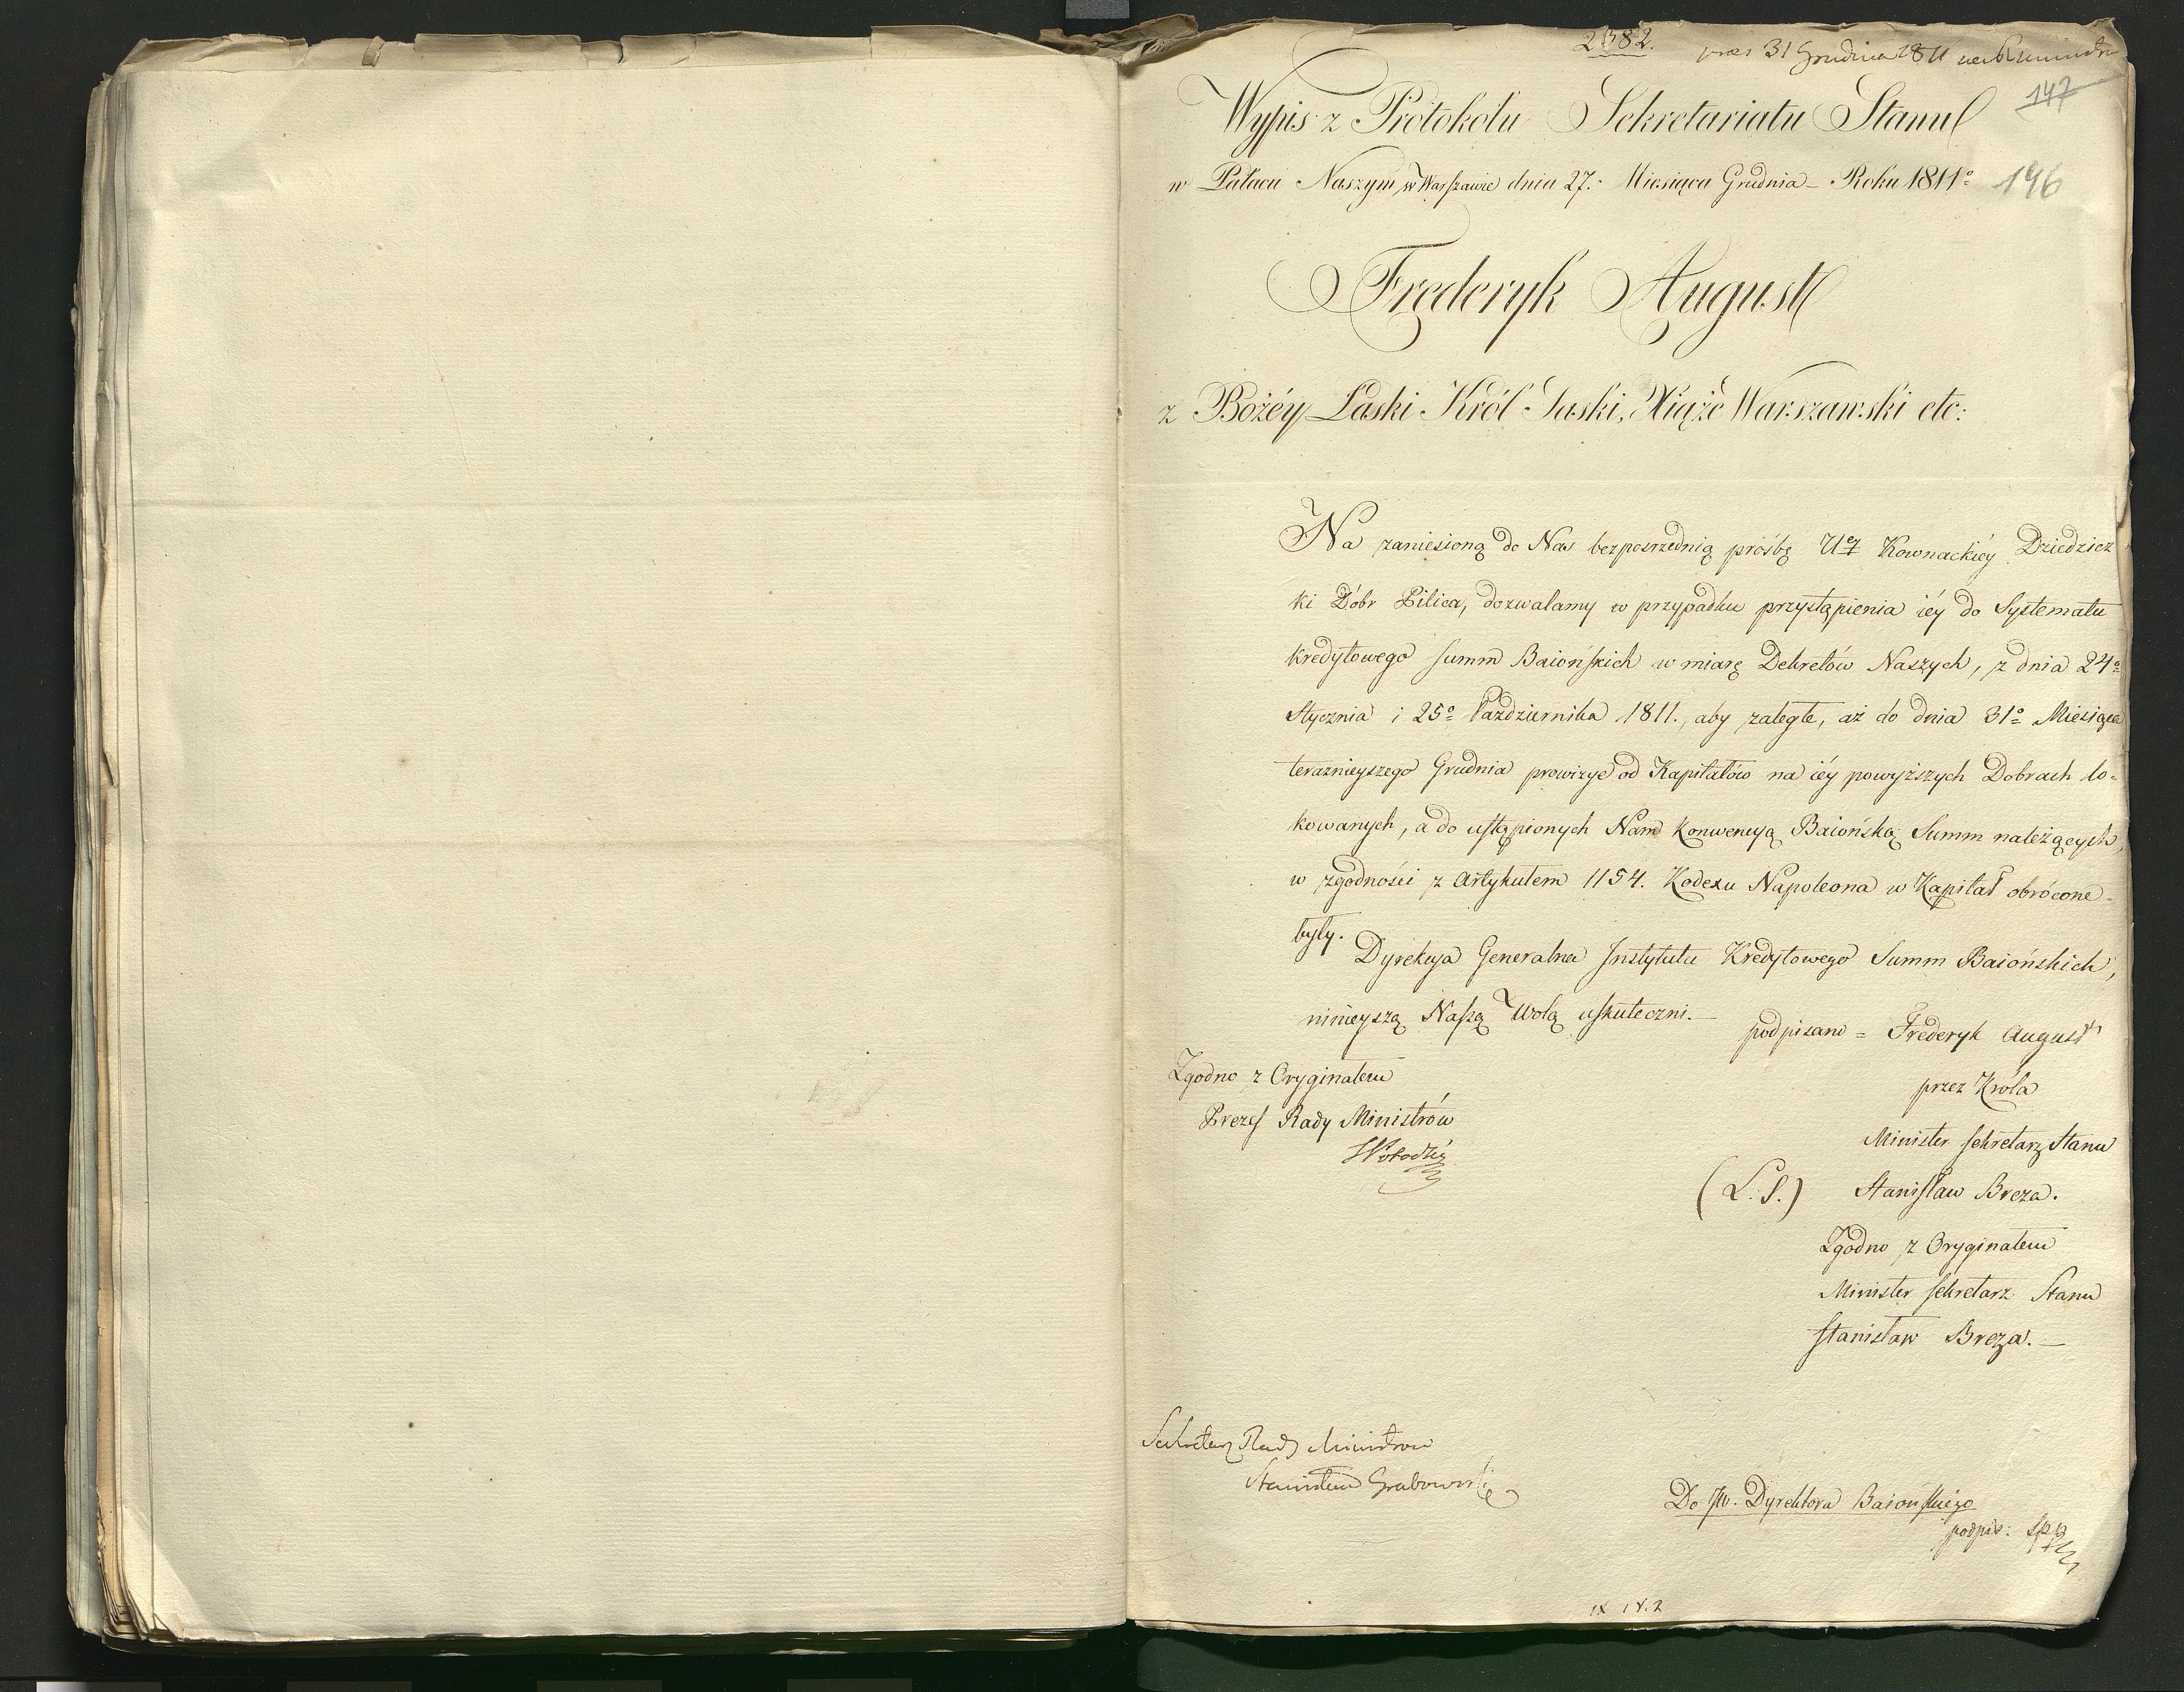 2382.
prez 31 Grudnia 1811
147
Wypis z Protokołu Sekretariatu Stanu
w Pałacu Naszym w Warszawie dnia 27. Miesiąca Grudnia – Roku 1811o
196
Frederyk August
z Bożéy Łaski Król Saski, Xiąże Warszawski etc:
Na zaniesioną do Nas bezpośrzednią prośbę Uey Kownackiéy Dziedzicz
ki Dóbr Pilica, dozwalamy w przypadku przystąpienia iéy do Systematu
kredytowego Summ Baiońskich w miarę Dekretów Naszych, z dnia 24o
Stycznia i 25o Października 1811., aby zaległe, aż do dnia 31o Miesiąca
teraznieyszego Grudnia prowizye od Kapitałów na iéy powyższych Dobrach lo=
kowanych, a do ustąpionych Nam Konwencyą Baiońską Summ należących,
w zgodności z Artykułem 1154. Kodexu Napoleona w Kapitał obrócone
były.
Dyrekcya Generalna Instytutu Kredytowego Summ Baiońskich,
ninieyszą Naszą Wolą uskuteczni.–
podpisano = Frederyk August
przez Króla
Minister Sekretarz Stanu
(L. S.) Stanisław Breza.
Zgodno z Oryginałem
Minister Sekretarz Stanu
Stanisław Breza.–
Zgodno z Oryginałem
Prezes Rady Ministrów
Sekretarz Rady Ministrow
Stanisław Grabowski
Do JW. Dyrektora Baiońskiego
podpis: